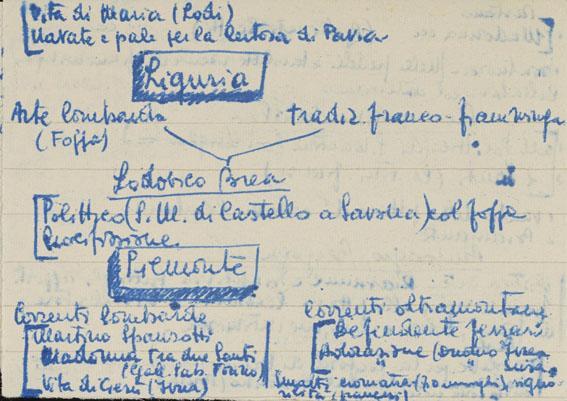 Vita di Maria (Lodi)
Navate e pale per la Certosa di Pavia
Liguria
Arte Lombarda
tradiz. franco-fiamminga
(Foppa)
Lodovico Brea
Polittico (S. M. di Castello a Savona) col Foppa
Crocifissione
Piemonte
Correnti Lombarde
Correnti oltramontane
Martino Spanzotti
Defendente Ferrari
Madonna tra due Santi
Adorazione (Duomo Ivrea
(Gall. Sab. Torino)
Susa
Vita di Gesù (Ivrea)
Smalti cromatici (fiamminghi),
(francesi)